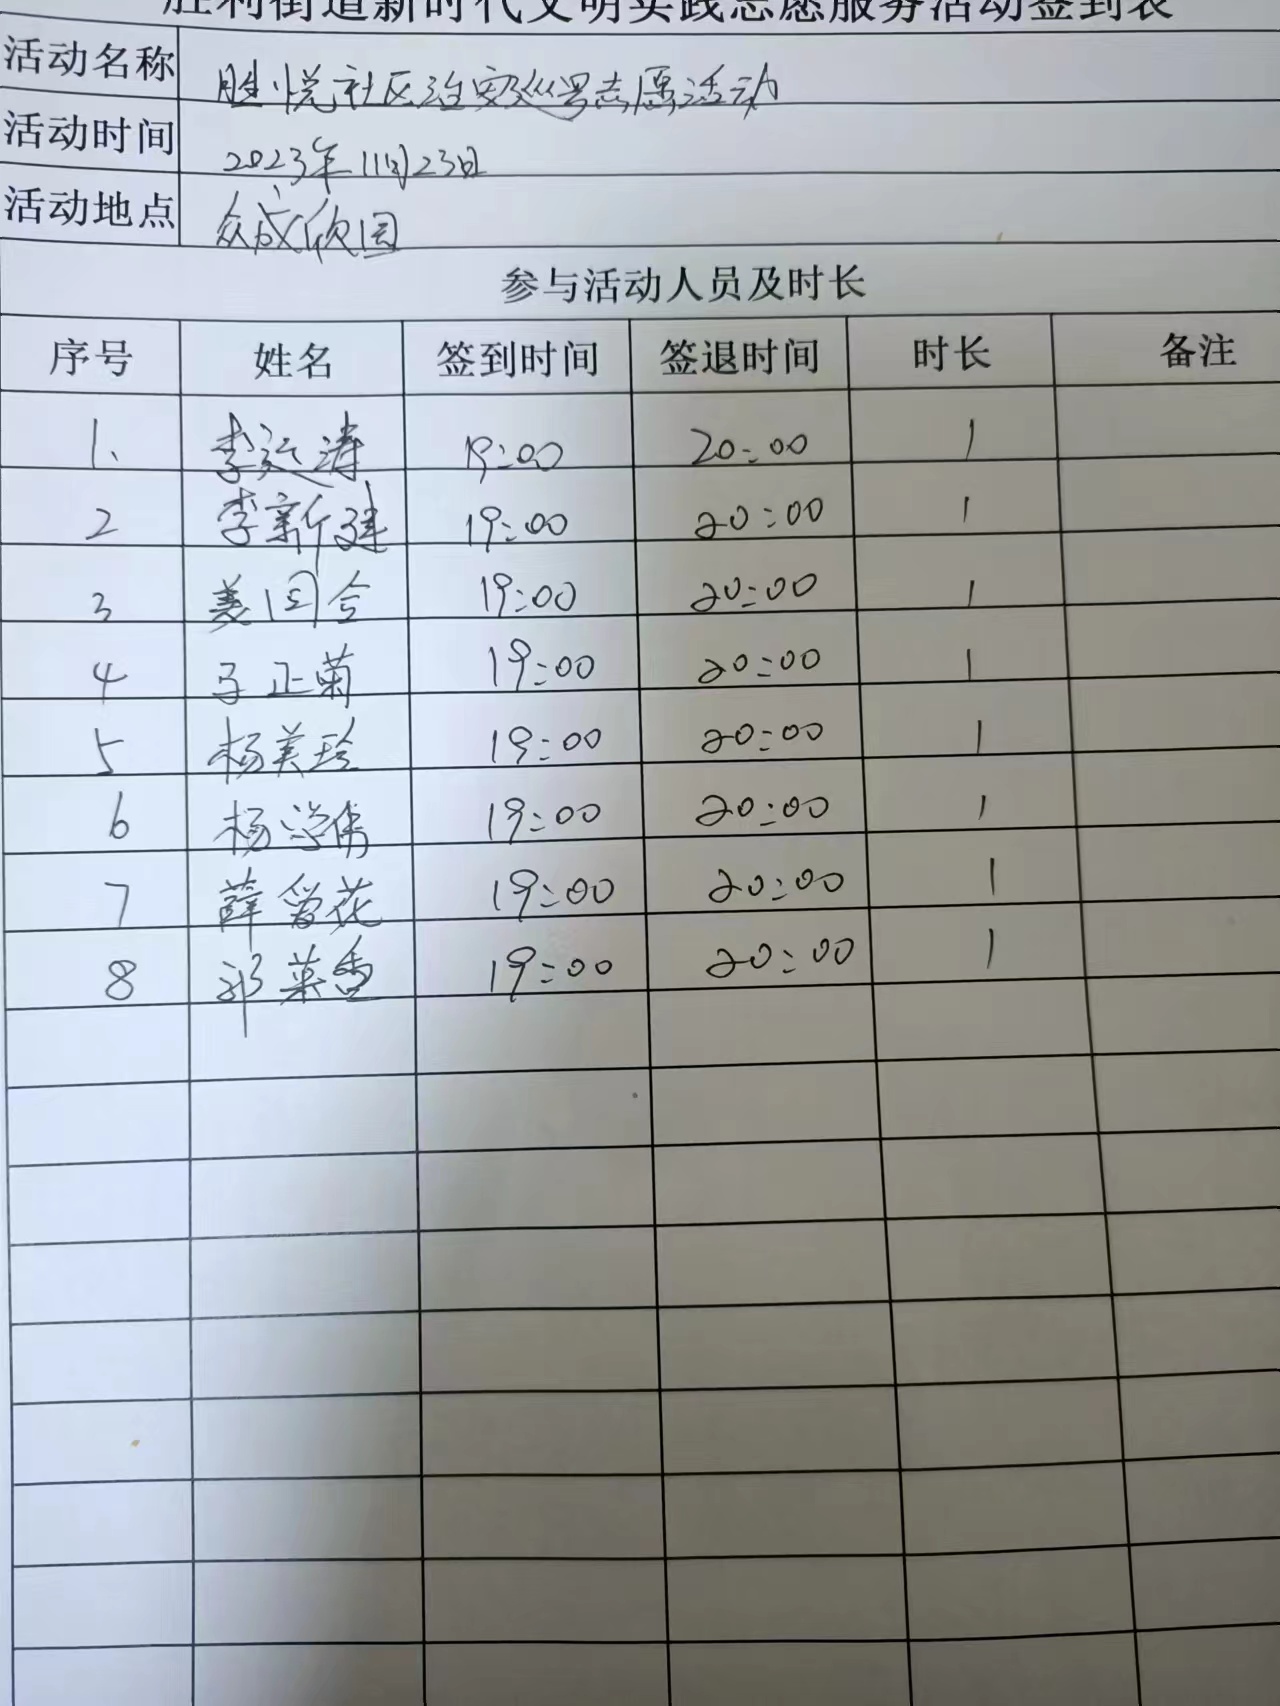 胜利街道新时代文明实践志愿服务活动签到表
活动名称 胜悦社区治安巡逻志愿活动
活动时间 2023年11月23日
活动地点 众成欣园
参与活动人员及时长
序号 姓名 签到时间 签退时间 时长 备注
1、 李廷涛 19:00 20:00 1
2 李新建 19:00 20:00 1
3 19:00 20:00 1
4 正菊 19:00 20:00 1
5 杨美珍 19:00 20:00 1
6 杨学伟 19:00 20:00 1
7 薛 花 19:00 20:00 1
8 香 19:00 20:00 1